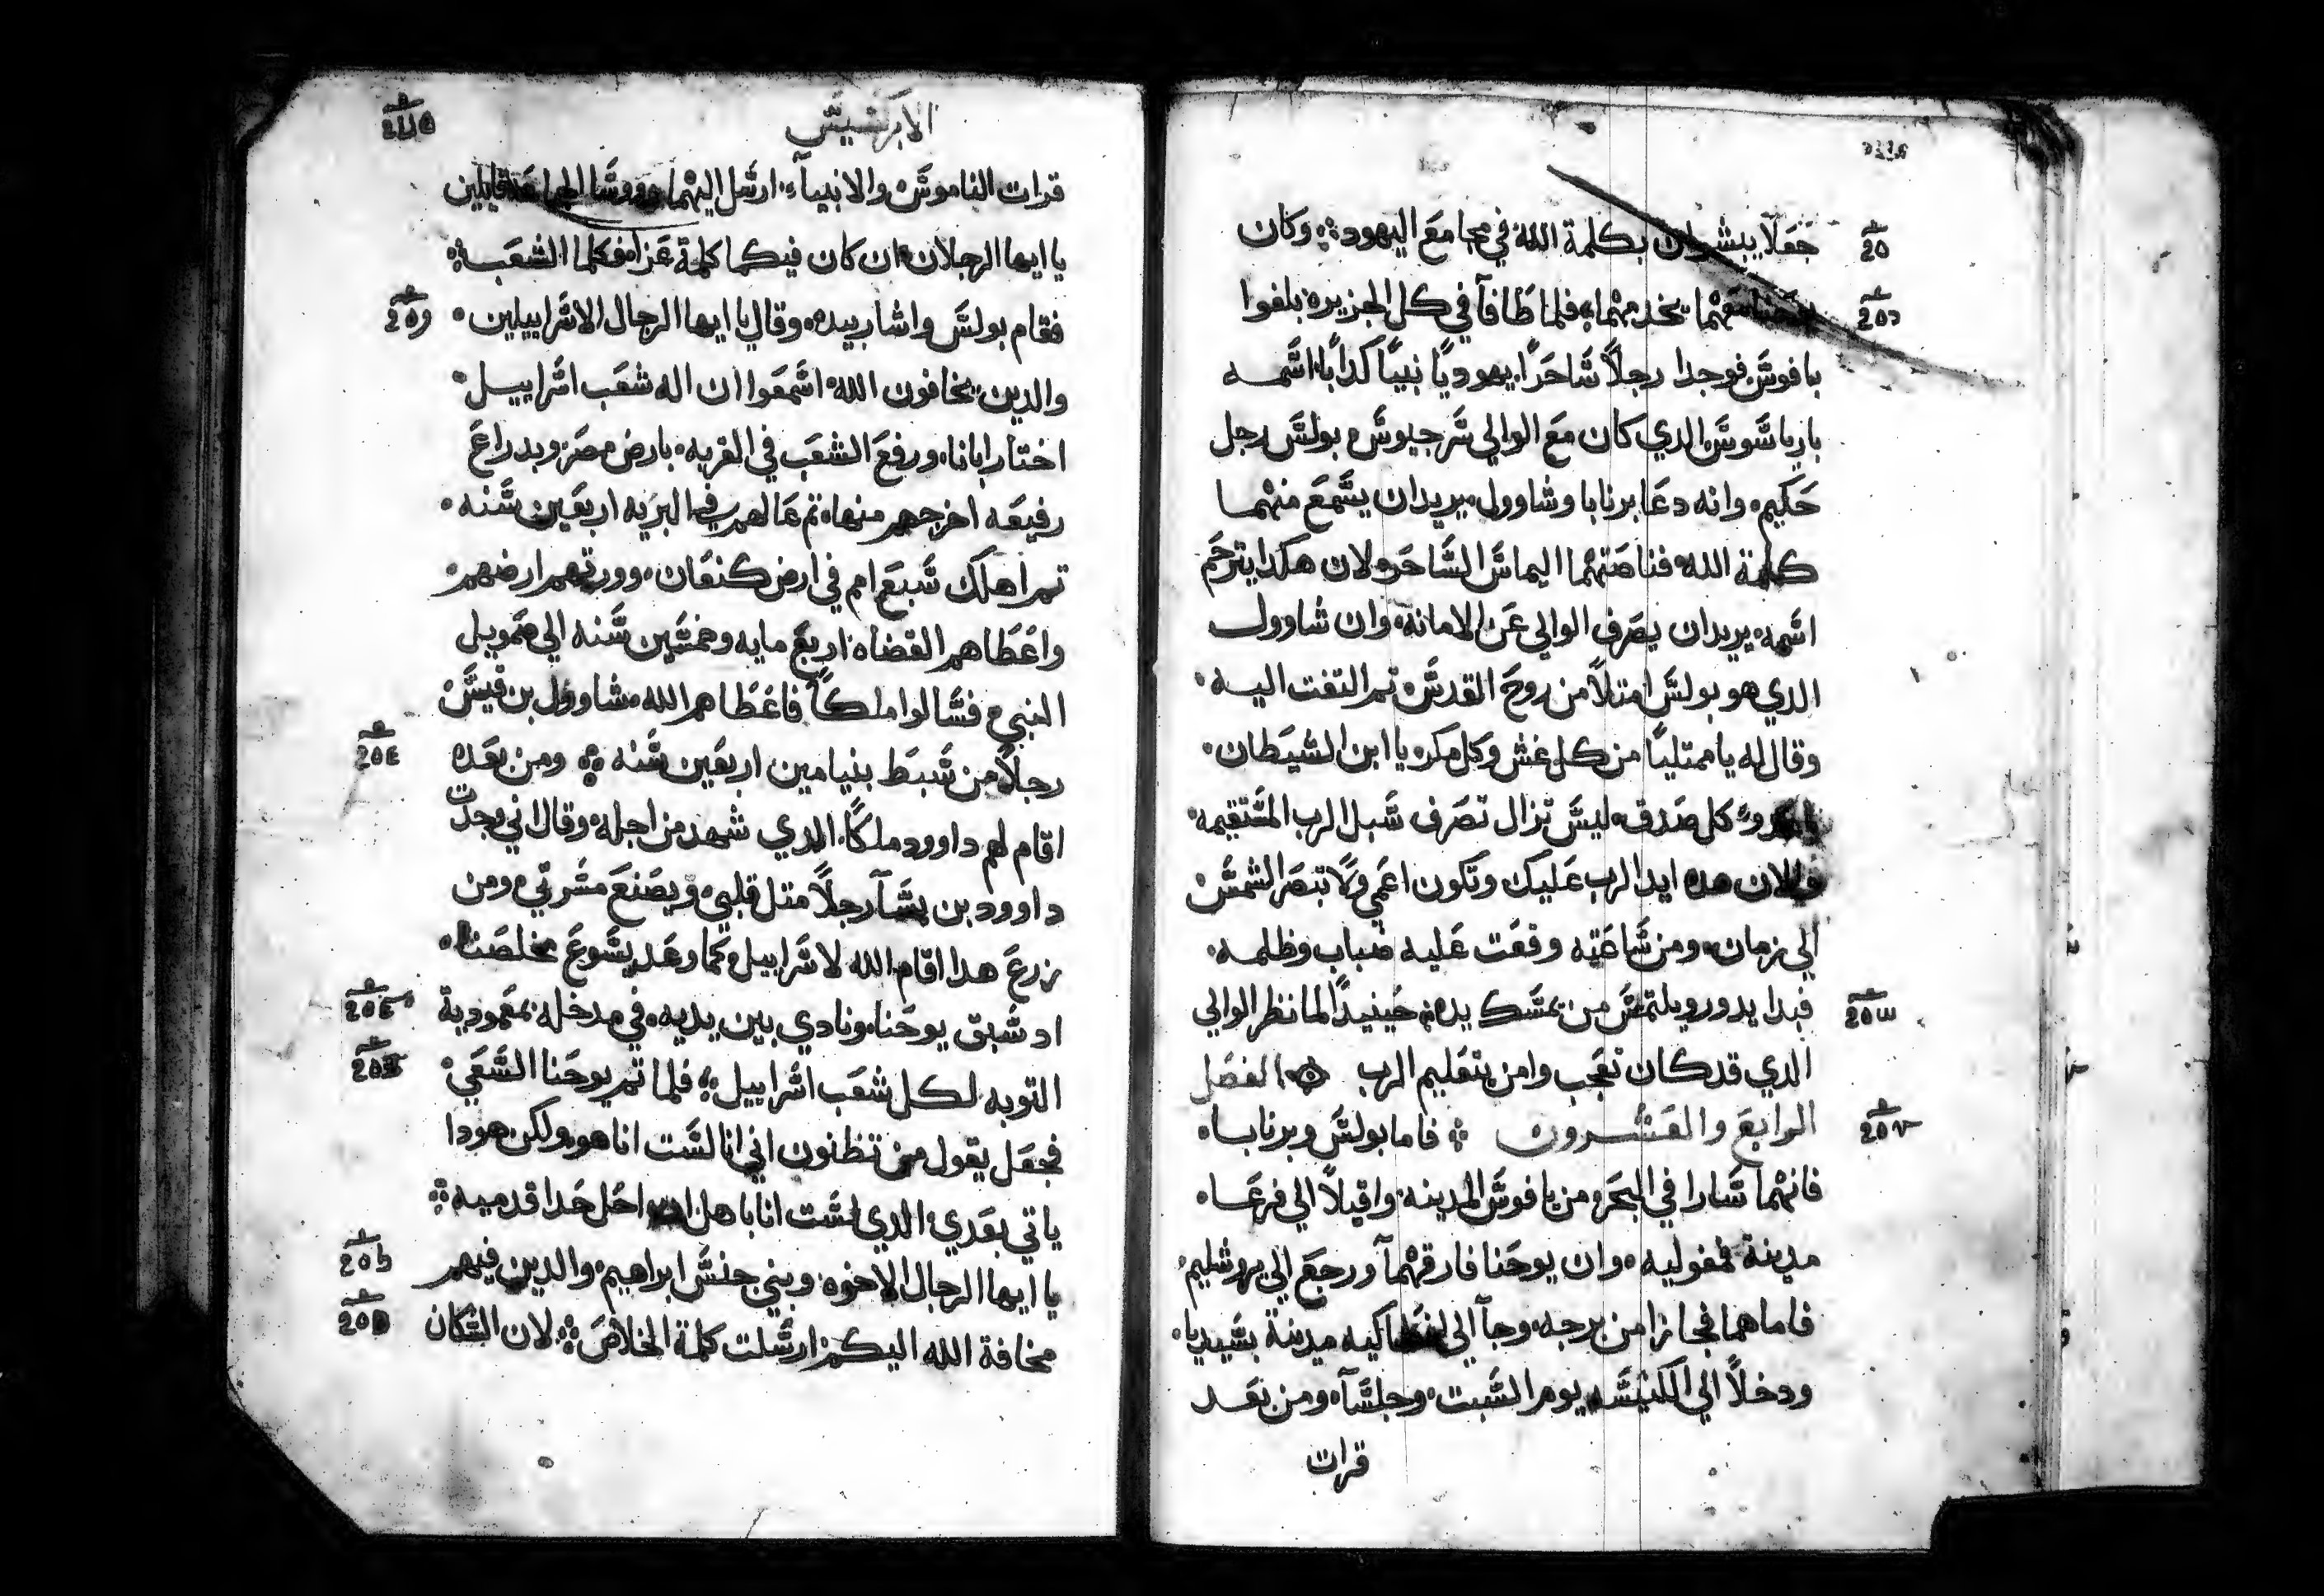 جعلا يبشران بكلمة الله في مجامع اليهود؞ وكان
معهما يخدمهما، فلما طافا في كل الجزيره بلغوا
بافوس فوجدا رجلاً ساحرًا يهوديًا نبيًا كدابًا اسمه
بارياسوس الدي كان مع الوالي سرجيوس بولس رجل
حكيم، وانه دعا برنابا وشاوول يريدان يسمع منهما
كلمة الله، فناصتهما اليماس الساحر ولان هكدا يترجم
اسمه يريدان يصرف الوالي عن الامانه، وان شاوول
الدي هو بولس امتلا من روح القدس تم التفت اليه
وقال له يا ممتليًا من كل غش وكل مكر يا ابن الشيطان
كل صدق ليس تزال تصرف سبل الرب المستقيمه
والان هده ايد الرب عليك وتكون اعمي ولا تبصر الشمس
الي زمان، ومن ساعته وقعت عليه ضباب وظلمه
فبدا يدور ويلتمس من يمسك يده؞ حينيدًا لما نظر الوالي
الدي قد كان تعجب وامن بتعليم الرب الفصل
الرابع والعشرون ؞ فاما بولس وبرنابا
فانهما سارا في البحر ومن بافوس المدينه واقبلا الي فرعا
مدينة بمفوليه، وان يوحنا فارقهما ورجع الي يرشليم
فاما هما فجازا من برجه وجآ الي انطاكيه مدينة بسيديا
ودخلاً الي الكنيسه يوم السبت، وجلسآ، ومن بعد
قرات
الابركسيس
قرات الناموس والانبيآء، ارسل اليهما قايلين
يا ايها الرجلان ان كان فيكما كلمة عزا فكلما الشعب؞
فقام بولس واشار بيده، وقال يا ايها الرجال الاسراييلين
والدين يخافون الله اسمعوا ان اله شعب اسراييل
اختار ابانا، ورفع الشعب في الغربه، بارض مصر وبدراع
رفيعه اخرجهم منها، تم عالهم في البريه اربعين سنه
تم اهلك سبع امم في ارض كنعان، وورتهم ارضهم
واعطاهم القضاه اربع مايه وخمسين سنه الي صمويل
النبي فسالوا ملكاً فاعطاهم الله شاوول بن قيس
رجلاً من سبط بنيامين اربعين سنه ؞ ومن بعده
اقام لهم داوود ملكًا الدي شهد من اجله وقال اني وجدت
داوود بن يسآ رجلاً متل قلبي ويصنع مسرتي ومن
زرع هدا اقام الله لاسراييل كما وعد يسوع مخلصنا
اد سبق يوحنا ونادي بين يديه، في مدخله بمعمودية
التوبه لكل شعب اسراييل؞ فلما تم يوحنا السعي
فجعل يقول من تظنون اني انا لست انا هو ولكن هودا
ياتي بعدي الدي لست انا باهل احل حدا قدميه؞
يا ايها الرجال الاخوه وبني جنس ابراهيم والدين فيهم
مخافة الله اليكم ارسلت كلمة الخلاص؞ لان السكان